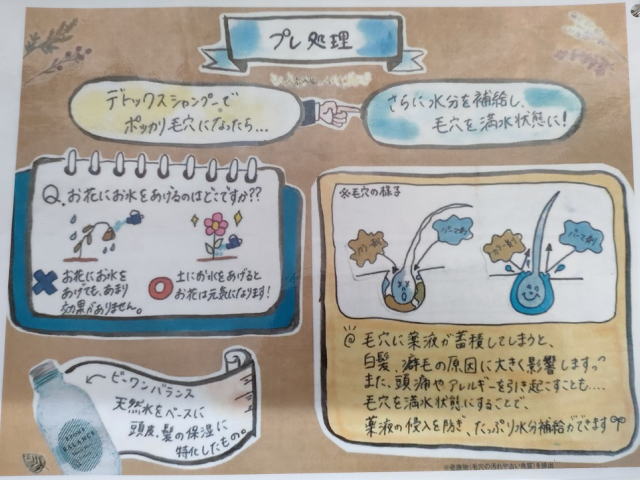 プレ処理
デトックスシャンプーで
ポッカリ毛穴になったら...
さらに水分を補給し、
毛穴を満水状態に!
Q. お花にお水をあげるのはどこですか??
お花にお水を
あげても、あまり
効果がありません。
土にお水をあげると
お花は元気になります!
※毛穴の様子
カラー剤
パーマ剤
カラー剤
パーマ剤
毛穴に薬液が蓄積してしまうと、
白髪、癖毛の原因に大きく影響します。
また、頭痛やアレルギーを引き起こすことも....
毛穴を満水状態にすることで、
薬液の侵入を防ぎ、たっぷり水分補給ができます
ビーワンバランス
天然水をベースに
頭皮、髪の保湿に
特化したもの。
BALANCE
※老廃物(毛穴の汚れや古い角質)を排出